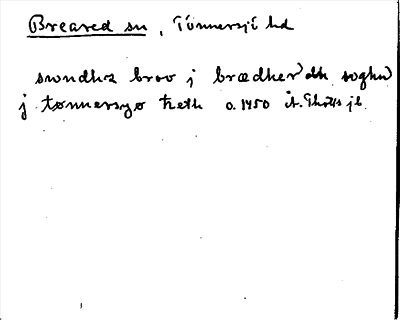 Breared sn, Tönnersjö hd
swndhæ broo j brædherydh soghn
j tønnersyø hæth o. 1450 Å. Thotts jb.